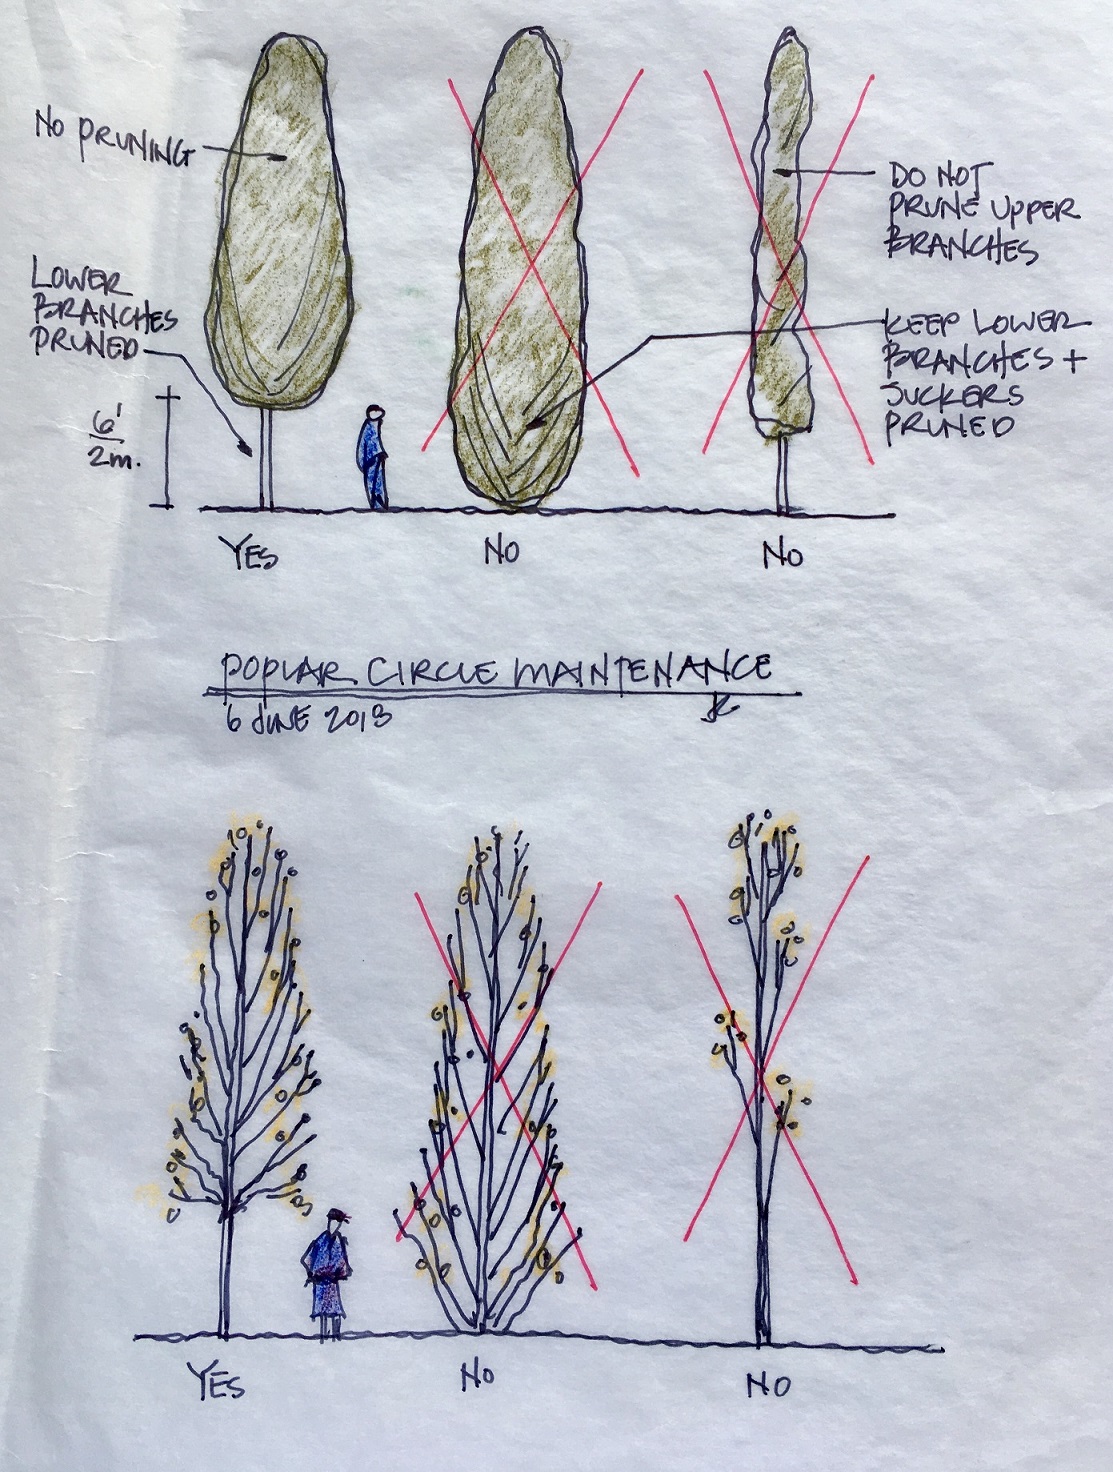 NO PRUNING
LOWER
BRANCHES
PRUNED
6'
2m.
DO NOT
PRUNE UPPER
BRANCHES
KEEP LOWER
BRANCHES +
SUCKERS
PRUNED
YES
NO
NO
POPLAR CIRCLE MAINTENANCE
6 JUNE 2013
YES
NO
NO